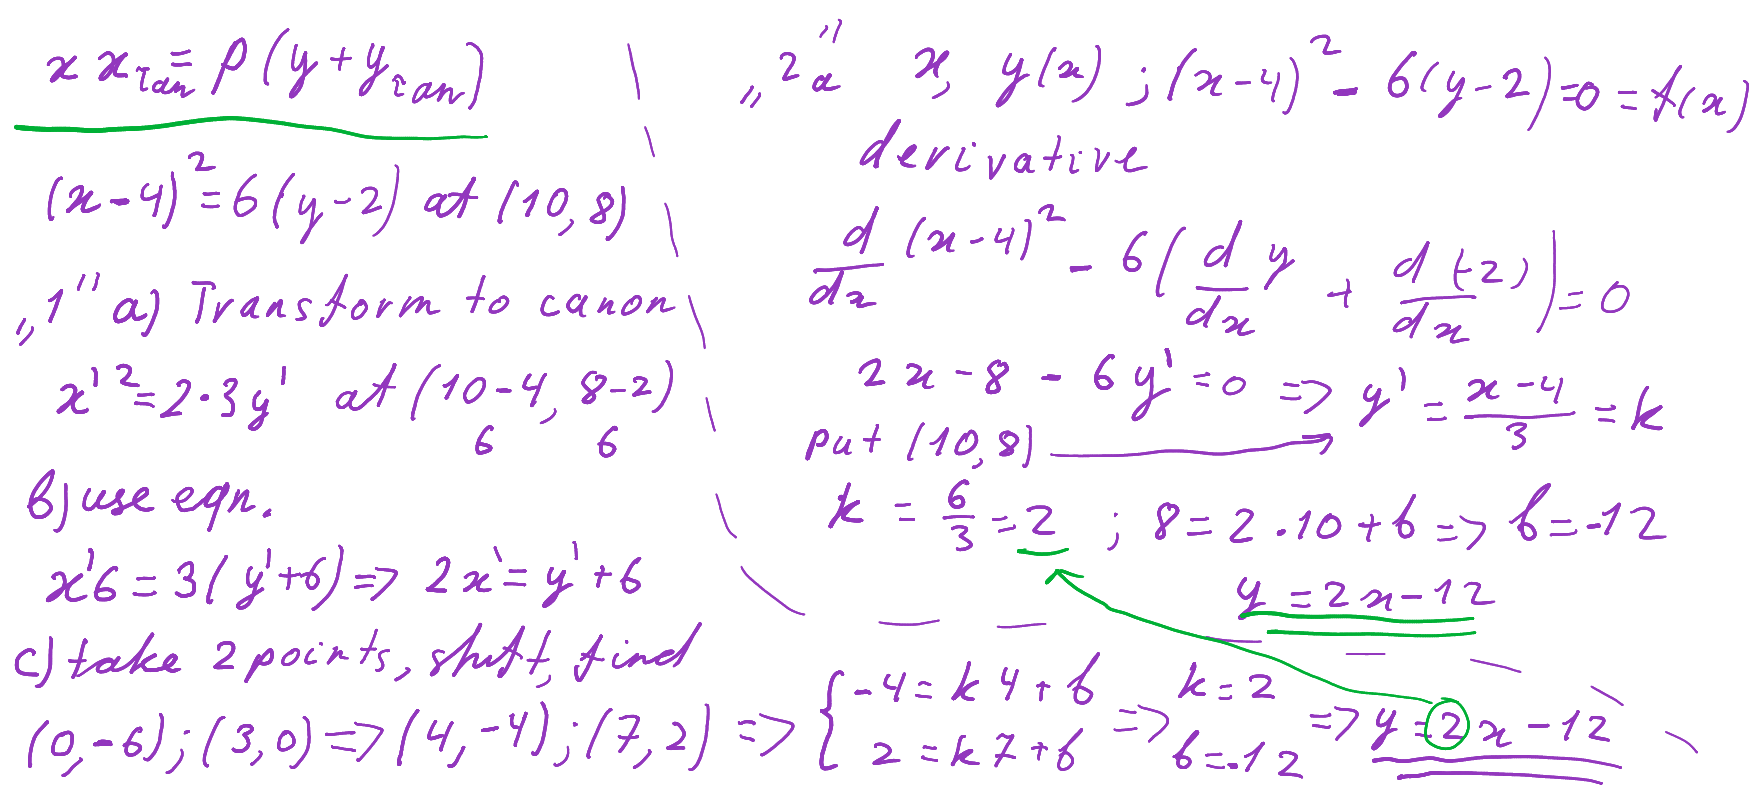 x x_τan = p(y + y_τan)
(x-4)² = 6(y-2) at (10, 8)
„1" a) Transform to canon
x'² = 2·3y' at (10-4, 8-2)
6 6
b) use eqn.
x'6 = 3(y'+6) => 2x' = y'+6
c) take 2 points, shift, find
(0,-6); (3,0) => (4,-4); (7,2) => { -4 = k4+b
2 = k7+b => k=2
b=-12 => y=2x-12
„2" a x, y(x); (x-4)² - 6(y-2)=0 = f(x)
derivative
d/dx (x-4)² - 6(d/dx y + d(-2)/dx) = 0
2x-8 - 6y' = 0 => y' = (x-4)/3 = k
put (10,8)
k = 6/3 = 2 ; 8 = 2·10+b => b=-12
y = 2x-12